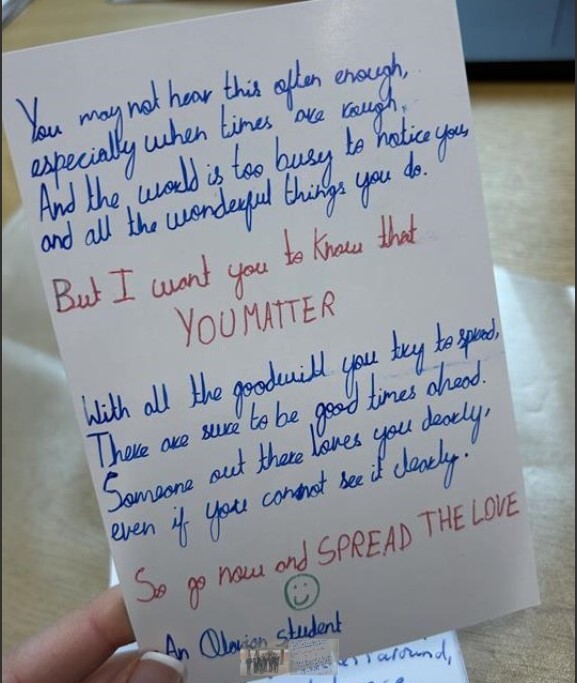 You may not hear this often enough,
especially when times are rough.
And the world is too busy to notice you,
and all the wonderful things you do.
But I want you to know that
YOU MATTER
With all the goodwill you try to spread,
There are sure to be good times ahead.
Someone out there loves you dearly,
even if you cannot see it clearly.
So go now and SPREAD THE LOVE
An Olavian student
around,